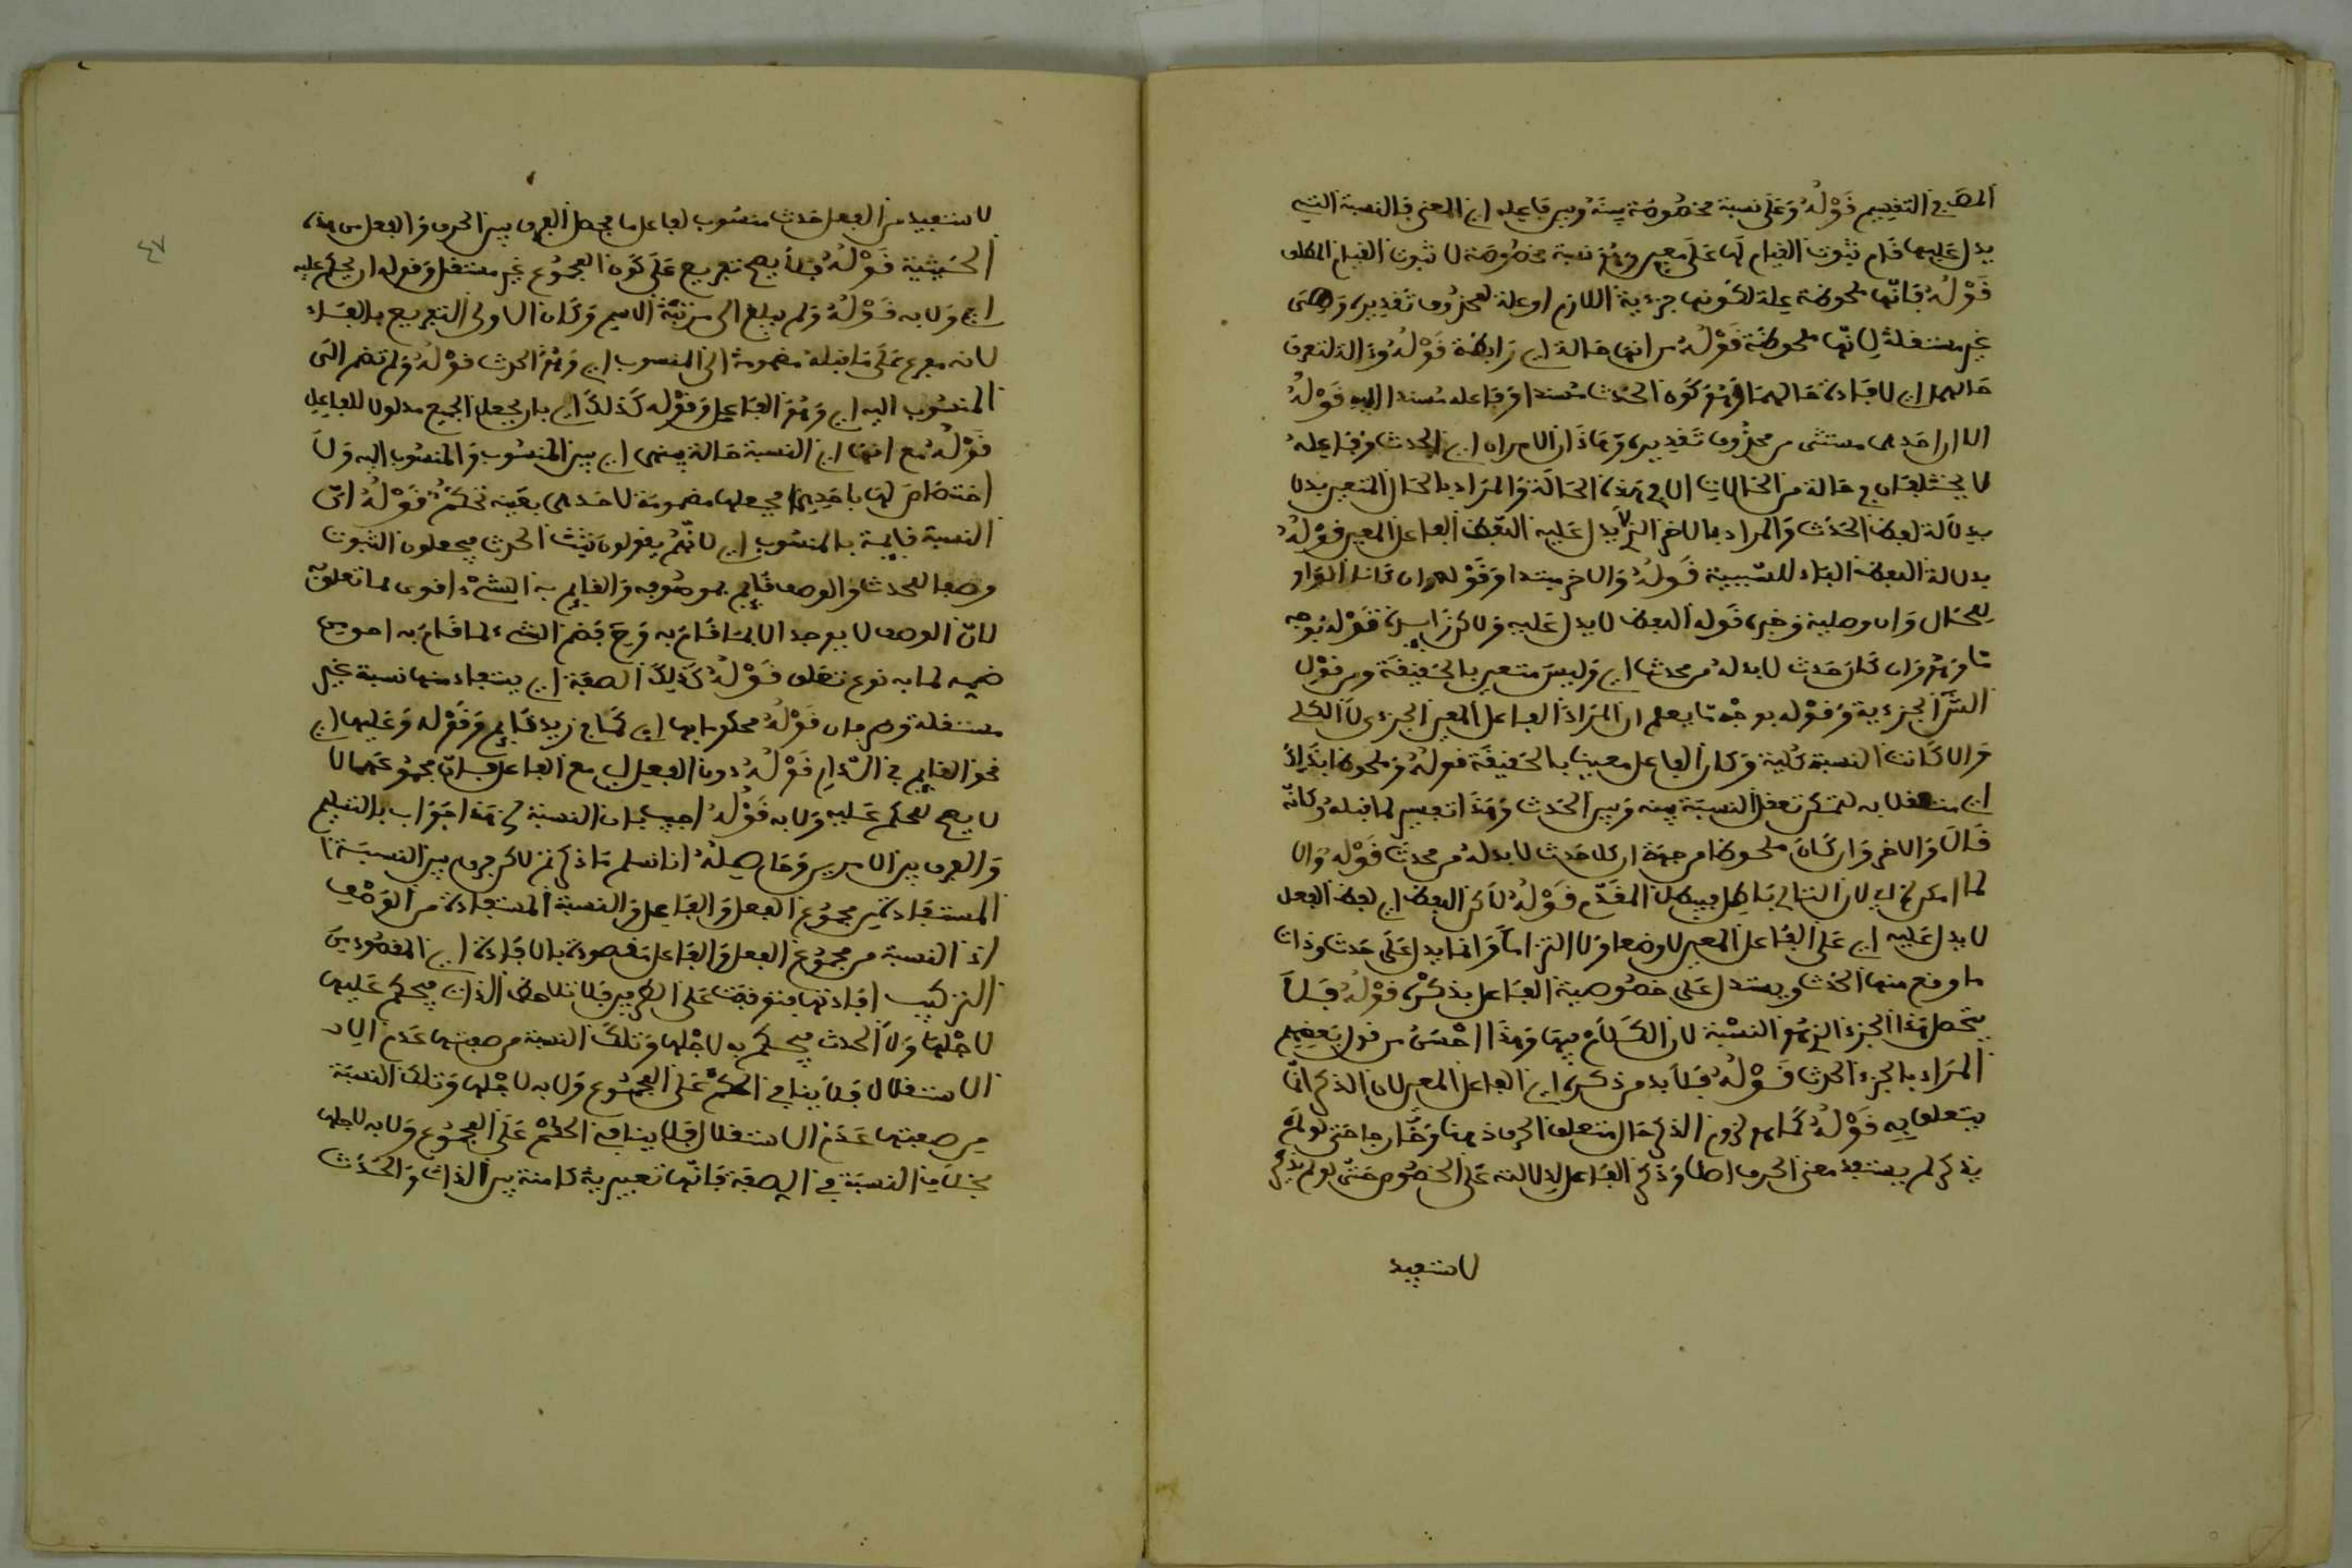 المص في التقسيم قَوْلُهُ وَعَلَى نسبة مخصُوصَة بينَهُ وبين فاعِله اي المعنى فالنسبة التي
يدل عَليها قَام ثبوت القيام لها عَلَى معين وهو نسبة مخصُوصَة لا ثبوت القيام المطلق
قَوْلُهُ فَانّها ملحوظة علة لكونها جزءية اللازم او علة لمحذوف تقديره وهي
غير مستقلة لِانّها ملحوظة قَوْلُهُ من انها حَالة اي رَابطة قَوْلُهُ وَالة لتعرف
حَالهما اي لافادة حَالهمَا وَهُوَ كَون الحَدث مسندا وَفَاعله مُسندا اليه قَوْلُهُ
الا ان احَدهما مستثنى من محذوف تَقديره وَهَاذَان الامران اي الحدث وَفَاعِلهُ
لا يختلفان في حَالة من الحَالات الا في هَذه الحَالَة وَالمرَاد بالحَال المتعين بدل
بدلالة لفظ الحَدَث وَالمراد بالاخر الذي لا يدل عَليه اللفظ الفاعل المعين قَوْلُهُ
بدلالة اللفظ البَاء للسَّببية قَولُهُ وَالاخر مبتدا وَقَوْله وان كانا الوَاو
للحَال وَان وصلية وَخبره قَوله اللفظ لا يدل عَليه وَلاكن قَوْلهُ بوَجه
مّا وَهُوَ ان كل حَدث لابد لهُ من محدث اي وَليسَ متعين بالحَقيقَة ومن قَوْل
الجزءية وَقَوْله بوَجْه مّا يعلم ان المرَاد الفَاعل المعين الجزءى لاَ الكلى
وَالا كَانت النسبَة كلية وَكان الفاعل معينا بالحَقيقَة قولهُ وَملحوظا بِذَلِكَ
اي متعقلا به ليمكن تعقل النسبَة بينه وَبين الحَدث وَهَذَا تفسير لما قبلهُ وكانّه
قَالَ وَالاخر وَان كَانَ ملحوظا من جهَة ان كل حَدث لا بد لهُ من محدث قَوْلُهُ وَالا
لما امكن لان التالي بَاطِل فيبطل المقَدّم قَوْلُهُ لَاكن اللفظ اي لفظ الفعل
لا يدل عَليه اي عَلَى الفَاعل المعين لا وضعا وَلا التزاماً وَانما يدل عَلَى حَدث وذات
ما وقع منها الحَدث ويستدل عَلَى خصُوصية الفَاعل بذكره قَوْلُهُ فَلاَ
يتحصل هَذا الجزء الذي هُوَ النسْبة لان الكَلَام فيهَا وَهَذَا احْسَنُ من قول بَعضهم
المرَاد بالجزء الحدث قَوْلُهُ فلاَ بد من ذكره اي الفاعل المعين لان الذكر انّما
يتعلق بِه قَوْلُهُ كَما هو لزوم الذكر حَال متعلق الحرف ذهنا وَخَارجا حتى لو لم
يذكر لم يستفد معنى الحرف اصلا وَذكر الفَاعل لدلالته عَلى الخصُوص حَتّى لو لم يذكر
لاستفيد
لاستفيد من الفعل حَدث منسُوب لفاعل ما فحصل الفرق بين الحرف وَالفعل من هذه
الحَيثية قَوْلُهُ فلاَ يصح تفريع عَلَى كَون المجمُوع غير مستقل وَقوله ان يحكم عليه
اي وَلا به قَوْلُهُ وَلم يبلغ الى مرتبَة الاسم وَكَان الاولى التفريع بالفَاء
لانه مفرع عَلَى مَا قبله مضمومة الى المنسوب اي وَهُوَ الحدث قَوْلُهُ وَلم تضم الَى
المنسُوب اليه اي وَهُوَ الفَاعل وَقَوْله كَذلكَ اي بان يجعل الجميع مدلولا للفَاعِل
قَوْلُهُ مع انهَا اي النسبة حَالة بينهما اي بين المنسُوب وَالمنسُوب اليه وَلاَ
اختصَاصَ لهَا باحَدِهما فجعلها مضمومَة لاحَدهما بعَينه تحَكمٌ قَوْلُهُ انّ
النسبة قايمة بالمنسُوب اي لانّهمْ يقولون ثبت الحدث فيجعلون الثبوت
وصفا للحدث وَالوصف قَايم بموصُوفه وَالقايم به الشيْء اقوى لما تعلق
لانّ الوصف لا يوجد الا بمَا قَامَ به وَحَ فضم الشيء لما قَامَ به احق من
ضمه لما به نوع تعَلق قَوْلُهُ كَذلِكَ الصفَة اي يستفاد منها نسبة غير
مستقلة وهي قَوْلُهُ محكوما بها اي كما في زيد قَايم وَقَوْله وَعَليها اي
نحو القَايم في الدّار قَوْلُهُ دون الفعل اي مع الفاعل فَانّ مجمُوعَهما لا
لا يصح للحكم عَليه وَلا به قَوْلُهُ اجيب بان النسبَة الخ هَذا جَوَاب بالتسليم
وَالفرق بين الامرين وَحَاصِلُهُ انا نسلم مَا ذكرتم لاكن فرق بين النسبَة
المستفَادة من مجمُوع الفعل وَالفَاعِل وَالنسبَة المستفادة من الوَصْف
اذ النسبة من مجمُوع الفعل وَالفَاعل مَقصودة بالافَادة اي المقصُود من
التركيب افادتها متوقفة عَلى الطرفين فلا تلاحظ الذات فيحكم عَليها
لاجْلهَا وَلاَ الحدث فيحكم به لاجْلها وَتلكَ النسبة من صفتها عَدم
الاستقلال فَلاَ يتاتى الحكم عَلى المجمُوع وَلا به لاجْلها وَتلك النسبَة
من صفتها عَدَم الاستقلال فلا يتاتى الحكْم عَلى المجمُوع وَلا به لاجلها
بخلَاف النسبَة في الصفَة فَانّها تقييدية كامنة بين الذات وَالحَدَث
٤٧